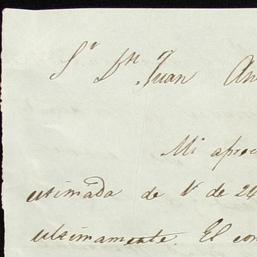 Sr Dn Juan An
Mi aprec
estimada de V de 24
ultimamente. El con